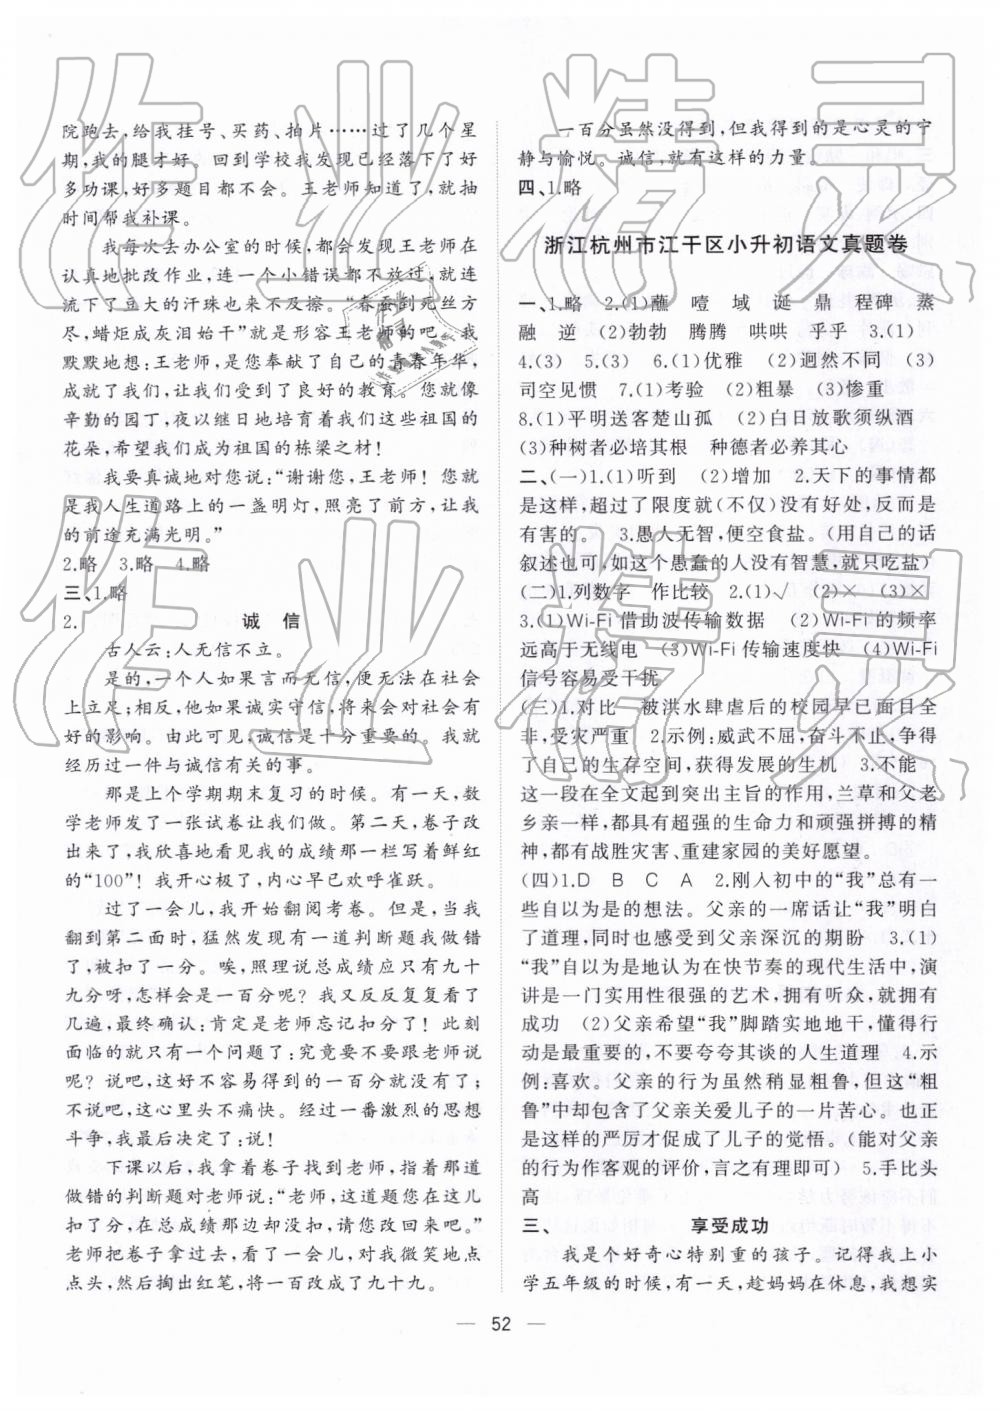 院跑去,给我挂号、买药、拍片……过了几个星
期,我的腿才好。回到学校我发现已经落下了好
多功课,好多题目都不会。王老师知道了,就抽
时间帮我补课。
我每次去办公室的时候,都会发现王老师在
认真地批改作业,连一个小错误都不放过,就连
流下了豆大的汗珠也来不及擦。“春蚕到死丝方
尽,蜡炬成灰泪始干”就是形容王老师的吧。我
默默地想:王老师,是您奉献了自己的青春年华,
成就了我们,让我们受到了良好的教育。您就像
辛勤的园丁,夜以继日地培育着我们这些祖国的
花朵,希望我们成为祖国的栋梁之材!
我要真诚地对您说:“谢谢您,王老师!您就
是我人生道路上的一盏明灯,照亮了前方,让我
的前途充满光明。”
2.略 3.略 4.略
三、1.略
2. 诚 信
古人云:人无信不立。
是的,一个人如果言而无信,便无法在社会
上立足;相反,他如果诚实守信,将来会对社会有
好的影响。由此可见,诚信是十分重要的。我就
经历过一件与诚信有关的事。
那是上个学期期末复习的时候。有一天,数
学老师发了一张试卷让我们做。第二天,卷子改
出来了,我欣喜地看见我的成绩那一栏写着鲜红
的“100”!我开心极了,内心早已欢呼雀跃。
过了一会儿,我开始翻阅考卷。但是,当我
翻到第二面时,猛然发现有一道判断题我做错
了,被扣了一分。唉,照理说总成绩应只有九十
九分呀,怎样会是一百分呢?我又反反复复看了
几遍,最终确认:肯定是老师忘记扣分了!此刻
面临的就只有一个问题了:究竟要不要跟老师说
呢?说吧,这好不容易得到的一百分就没有了;
不说吧,这心里头不痛快。经过一番激烈的思想
斗争,我最后决定了:说!
下课以后,我拿着卷子找到老师,指着那道
做错的判断题对老师说:“老师,这道题您在这儿
扣了分,在总成绩那边却没扣,请您改回来吧。”
老师把卷子拿过去,看了一会儿,对我微笑地点
点头,然后掏出红笔,将一百改成了九十九。
一百分虽然没得到,但我得到的是心灵的宁
静与愉悦。诚信,就有这样的力量。
四、1.略
浙江杭州市江干区小升初语文真题卷
一、1.略 2.(1)蘸 噎 域 诞 鼎 程碑 蒸
融 逆 (2)勃勃 腾腾 哄哄 乎乎 3.(1)
4.(3) 5.(3) 6.(1)优雅 (2)迥然不同 (3)
司空见惯 7.(1)考验 (2)粗暴 (3)惨重
8.(1)平明送客楚山孤 (2)白日放歌须纵酒
(3)种树者必培其根 种德者必养其心
二、(一)1.(1)听到 (2)增加 2.天下的事情都
是这样,超过了限度就(不仅)没有好处,反而是
有害的。 3.愚人无智,便空食盐。(用自己的话
叙述也可,如这个愚蠢的人没有智慧,就只吃盐)
(二)1.列数字 作比较 2.(1)√ (2)× (3)×
3.(1)Wi-Fi借助波传输数据 (2)Wi-Fi的频率
远高于无线电 (3)Wi-Fi传输速度快 (4)Wi-Fi
信号容易受干扰
(三)1.对比 被洪水肆虐后的校园早已面目全
非,受灾严重 2.示例:威武不屈,奋斗不止,争得
了自己的生存空间,获得发展的生机 3.不能
这一段在全文起到突出主旨的作用,兰草和父老
乡亲一样,都具有超强的生命力和顽强拼搏的精
神,都有战胜灾害、重建家园的美好愿望。
(四)1.D B C A 2.刚入初中的“我”总有一
些自以为是的想法。父亲的一席话让“我”明白
了道理,同时也感受到父亲深沉的期盼 3.(1)
“我”自以为是地认为在快节奏的现代生活中,演
讲是一门实用性很强的艺术,拥有听众,就拥有
成功 (2)父亲希望“我”脚踏实地地干,懂得行
动是最重要的,不要夸夸其谈的人生道理 4.示
例:喜欢。父亲的行为虽然稍显粗鲁,但这“粗
鲁”中却包含了父亲关爱儿子的一片苦心。也正
是这样的严厉才促成了儿子的觉悟。(能对父亲
的行为作客观的评价,言之有理即可) 5.手比头
高
三、 享受成功
我是个好奇心特别重的孩子。记得我上小
学五年级的时候,有一天,趁妈妈在休息,我想实
52
作业精灵
作业精灵